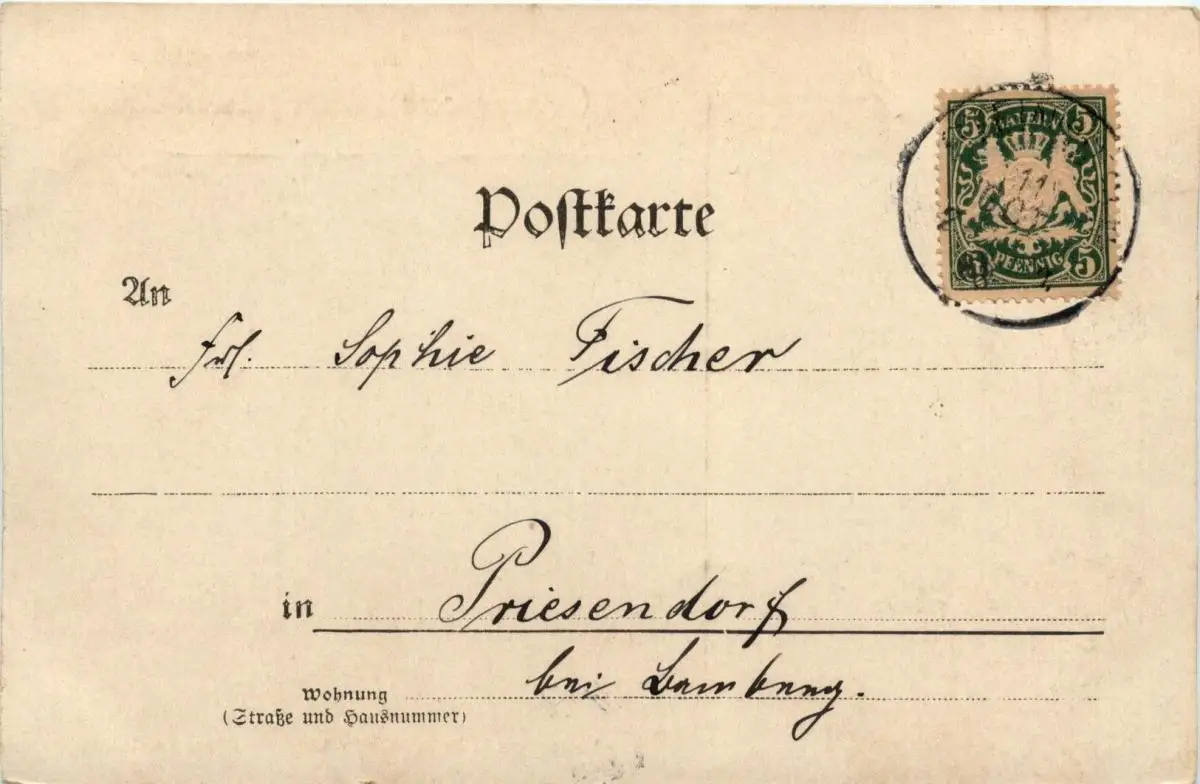 5 BAYERN 5
11
5 PFENNIG 5
Postkarte
An
Frl. Sophie Fischer
in Priesendorf
bei Bamberg.
Wohnung
(Straße und Hausnummer)